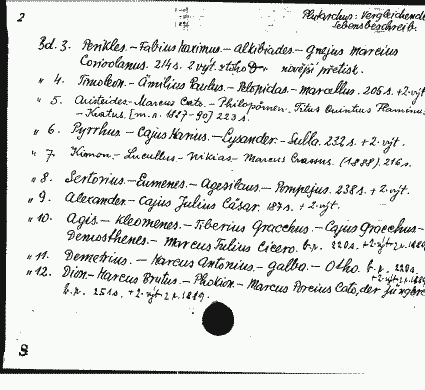 2
Plutarchus: Vergleichende
Lebensbeschreib.
Bd. 3. Perikles.-Fabius Maximus.-Alkibiades-Gnejus Marcius
Coriolanus. 214 s. 2 výt. novější přetisk.
" 4. Timoleon.-Ämilius Paulus.-Pelopidas-Marcellus. 206 s. +2 výt.
" 5. Aristeides.-Marcus Cato.-Philopömen.-Titus Quintius Flaminius
-Aratus. [m.n. 1887-90] 223 s.
" 6. Pyrrhus-Cajus Marius.-Lysander.-Sulla. 232 s. +2 výt.
" 7. Kimon.-Lucullus-Nikias-Marcus Crassus. (1888) 216 s.
" 8. Sertorius.-Eumenes.-Agesilaus.-Pompejus. 238 s. +2 výt.
" 9. Alexander-Cajus Julius Cäsar. 187 s. +2 výt.
" 10. Agis.-Kleomenes-Tiberius Gracchus.-Cajus Gracchus-
Demosthenes-Marcus Tullius Cicero. b.r. 220 s. +2 výt.
" 11. Demetrius.-Marcus Antonius.-Galba.-Otho. b.r. 220 s.
+2 výt. 2 r. 1889
" 12. Dion.-Marcus Brutus.-Phokion.-Marcus Porcius Cato, der jüngere
b.r. 251 s. +2 výt 2 r. 1889.
S